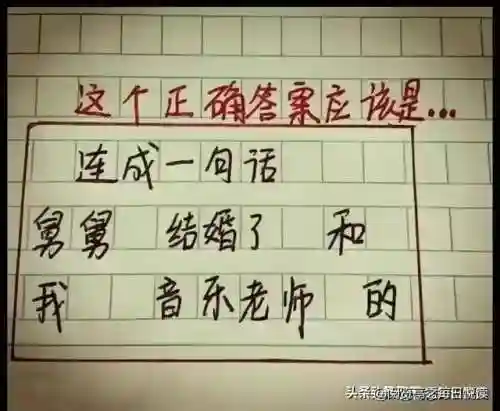 这个正确答案应该是...
连成一句话
舅舅 结婚了 和
我 音乐老师 的